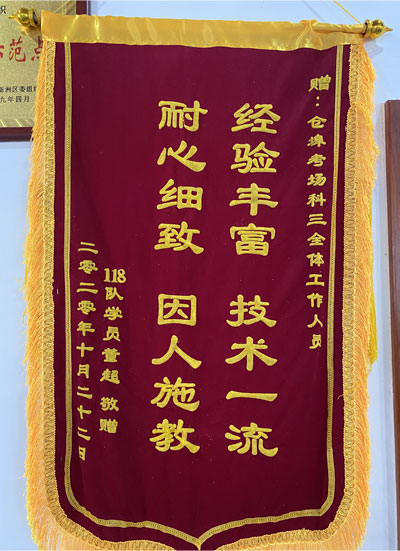 赠：仓埠考场科三全体工作人员
经验丰富 技术一流
耐心细致 因人施教
118队学员董超 敬赠
二零二零年十月二十二日
范点
新洲区委组
九年四月